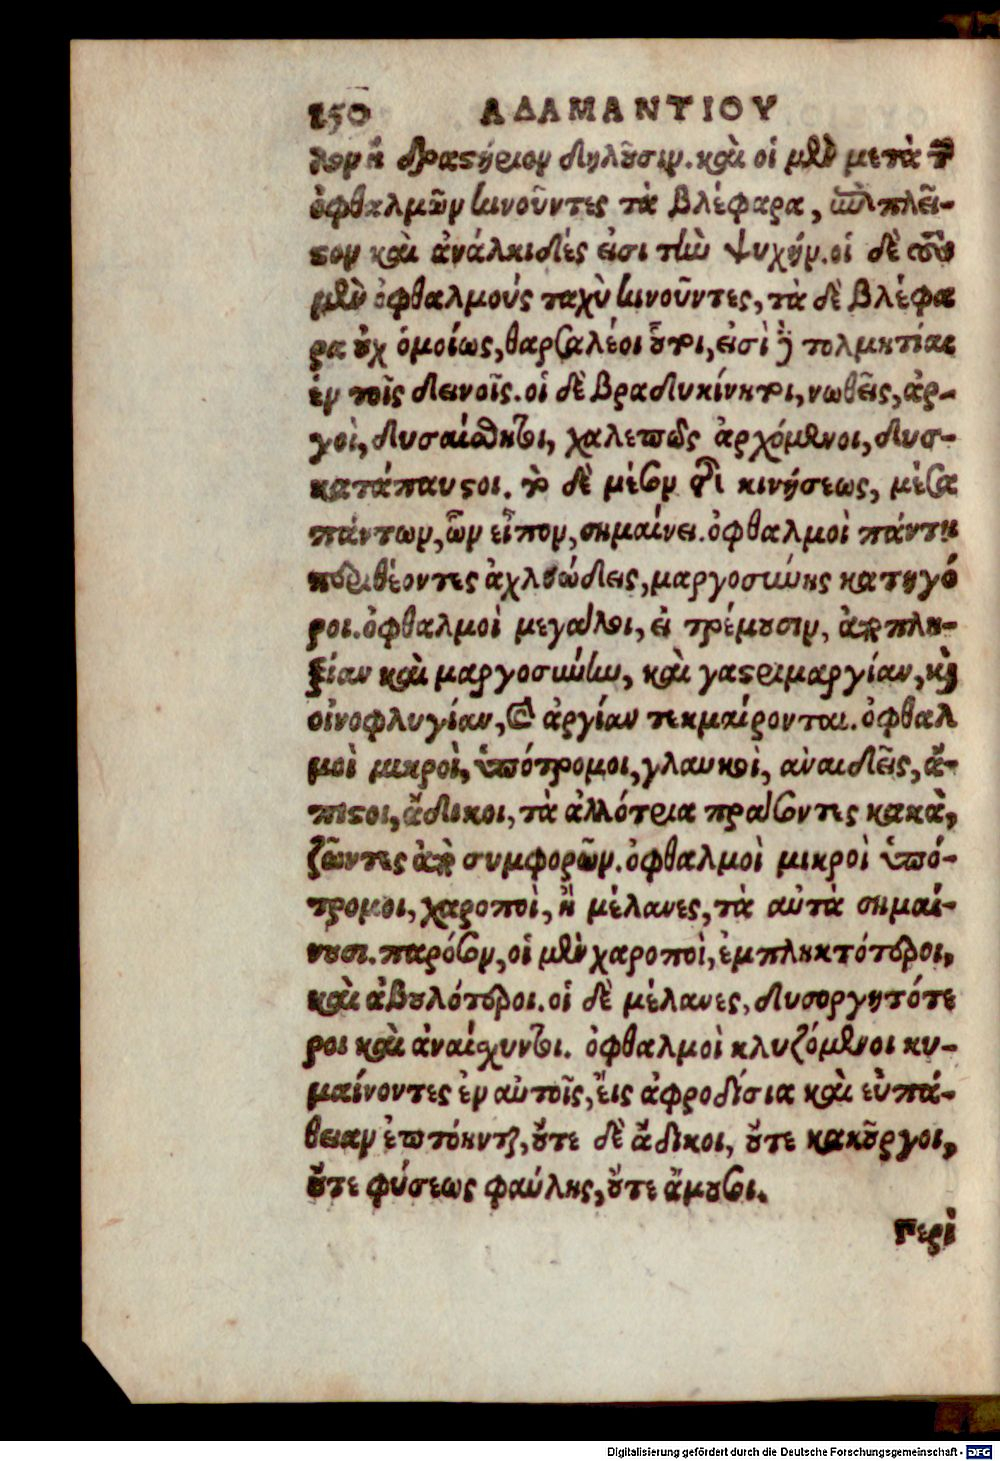 150 ΑΔΑΜΑΝΤΙΟΥ
λον ἢ δραστήριον δηλοῦσιν. καὶ οἱ μὲν μετὰ τῶν
ὀφθαλμῶν κινοῦντες τὰ βλέφαρα, ὡς ἐπὶ πλεῖ-
στον καὶ ἀνάλκιδές εἰσι τὴν ψυχήν. οἱ δὲ τοὺς
μὲν ὀφθαλμοὺς ταχὺ κινοῦντες, τὰ δὲ βλέφα
ρα οὐχ ὁμοίως, θαρσαλέοι οὗτοι, εἰσὶ καὶ τολμητίαι
ἐν τοῖς δεινοῖς. οἱ δὲ βραδυκίνητοι, νωθεῖς, ἀρ-
γοὶ, δυσαίσθητοι, χαλεπῶς ἀρχόμενοι, δυσ-
κατάπαυστοι. τὸ δὲ μέσον τῆς κινήσεως, μέσα
πάντων, ὧν εἶπον, σημαίνει. ὀφθαλμοὶ πάντη
περιθέοντες ἀχλυώδεις, μαργοσύνης κατηγό
ροι. ὀφθαλμοὶ μεγάλοι, εἰ τρέμουσιν, ἀποπλη-
ξίαν καὶ μαργοσύνην, καὶ γαστριμαργίαν, καὶ
οἰνοφλυγίαν, καὶ ἀργίαν τεκμαίρονται. ὀφθαλ
μοὶ μικροὶ, ὑπότρομοι, γλαυκοὶ, ἀναιδεῖς, ἄ-
πιστοι, ἄδικοι, τὰ ἀλλότρια πράσσοντες κακὰ,
ζῶντες ἀπὸ συμφορῶν. ὀφθαλμοὶ μικροὶ ὑπό-
τρομοι, χαροποὶ, ἢ μέλανες, τὰ αὐτὰ σημαί-
νουσι. παρόσον, οἱ μὲν χαροποὶ, ἐμπληκτότεροι,
καὶ ἀβουλότεροι. οἱ δὲ μέλανες, δυσοργητότε
ροι καὶ ἀναίσχυντοι. ὀφθαλμοὶ κλυζόμενοι κυ-
μαίνοντες ἐν αὑτοῖς, εἰς ἀφροδίσια καὶ εὐπά-
θειαν ἐπτόηνται, οὔτε δὲ ἄδικοι, οὔτε κακοῦργοι,
οὔτε φύσεως φαύλης, οὔτε ἄμουσοι.
Περὶ
Digitalisierung gefördert durch die Deutsche Forschungsgemeinschaft - DFG